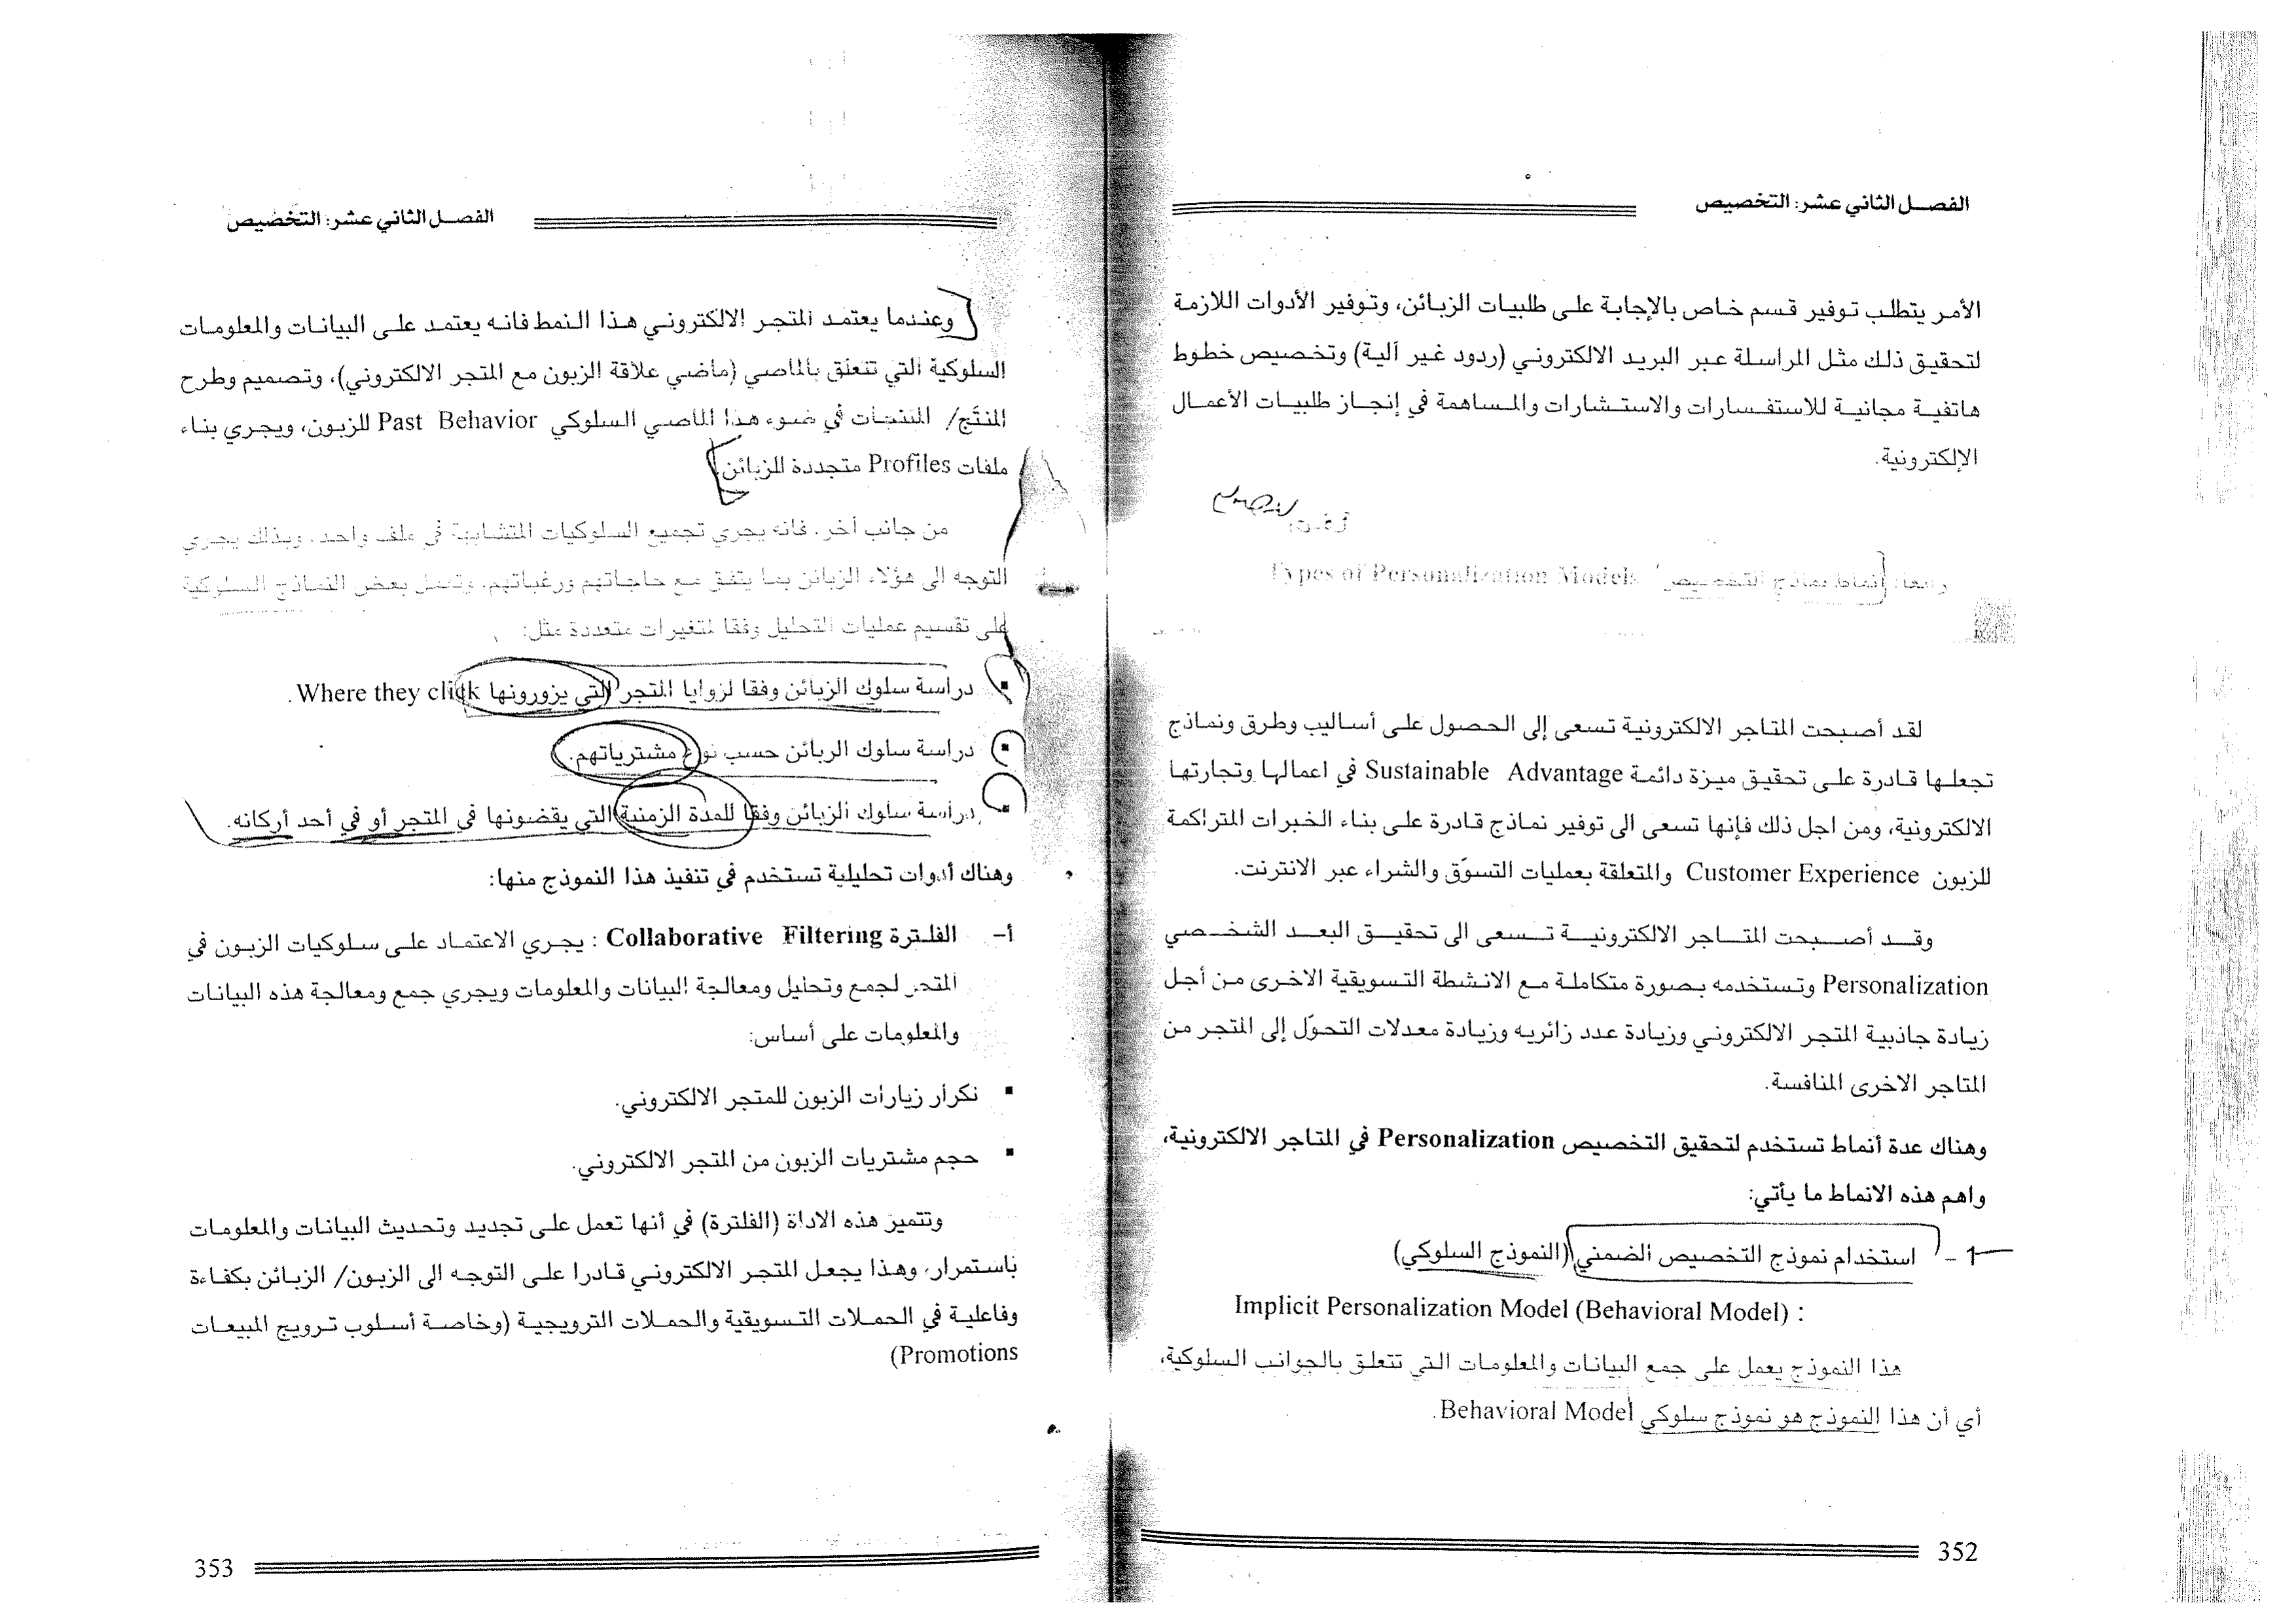 الفصل الثاني عشر: التخصيص
الأمر يتطلب توفير قسم خاص بالإجابة على طلبيات الزبائن، وتوفير الأدوات اللازمة
لتحقيق ذلك مثل المراسلة عبر البريد الالكتروني (ردود غير آلية) وتخصيص خطوط
هاتفية مجانية للاستفسارات والاستشارات والمساهمة في إنجاز طلبيات الأعمال
الإلكترونية.
رابعا: أنماط نماذج التخصيص Types of Personalization Models
لقد أصبحت المتاجر الالكترونية تسعى إلى الحصول على أساليب وطرق ونماذج
تجعلها قادرة على تحقيق ميزة دائمة Sustainable Advantage في اعمالها وتجارتها
الالكترونية، ومن اجل ذلك فإنها تسعى الى توفير نماذج قادرة على بناء الخبرات المتراكمة
للزبون Customer Experience والمتعلقة بعمليات التسوّق والشراء عبر الانترنت.
وقد أصبحت المتاجر الالكترونية تسعى الى تحقيق البعد الشخصي
Personalization وتستخدمه بصورة متكاملة مع الانشطة التسويقية الاخرى من أجل
زيادة جاذبية المتجر الالكتروني وزيادة عدد زائريه وزيادة معدلات التحوّل إلى المتجر من
المتاجر الاخرى المنافسة.
وهناك عدة أنماط تستخدم لتحقيق التخصيص Personalization في المتاجر الالكترونية،
واهم هذه الانماط ما يأتي:
1- استخدام نموذج التخصيص الضمني (النموذج السلوكي)
Implicit Personalization Model (Behavioral Model) :
هذا النموذج يعمل على جمع البيانات والمعلومات التي تتعلق بالجوانب السلوكية،
أي أن هذا النموذج هو نموذج سلوكي Behavioral Model.
352
الفصل الثاني عشر: التخصيص
وعندما يعتمد المتجر الالكتروني هذا النمط فانه يعتمد على البيانات والمعلومات
السلوكية التي تتعلق بالماضي (ماضي علاقة الزبون مع المتجر الالكتروني)، وتصميم وطرح
المنتَج/ المنتجات في ضوء هذا الماضي السلوكي Past Behavior للزبون، ويجري بناء
ملفات Profiles متجددة للزبائن.
من جانب آخر، فانه يجري تجميع السلوكيات المتشابهة في ملف واحد، وبذلك يجري
التوجه الى هؤلاء الزبائن بما يتفق مع حاجاتهم ورغباتهم، وتعمل بعض النماذج السلوكية
على تقسيم عمليات التحليل وفقا لمتغيرات متعددة مثل:
▪ دراسة سلوك الزبائن وفقا لزوايا المتجر التي يزورونها Where they click.
▪ دراسة سلوك الزبائن حسب نوع مشترياتهم.
▪ دراسة سلوك الزبائن وفقا للمدة الزمنية التي يقضونها في المتجر أو في أحد أركانه.
وهناك أدوات تحليلية تستخدم في تنفيذ هذا النموذج منها:
أ- الفلترة Collaborative Filtering : يجري الاعتماد على سلوكيات الزبون في
المتجر لجمع وتحليل ومعالجة البيانات والمعلومات ويجري جمع ومعالجة هذه البيانات
والمعلومات على أساس:
▪ تكرار زيارات الزبون للمتجر الالكتروني.
▪ حجم مشتريات الزبون من المتجر الالكتروني.
وتتميز هذه الاداة (الفلترة) في أنها تعمل على تجديد وتحديث البيانات والمعلومات
باستمرار، وهذا يجعل المتجر الالكتروني قادرا على التوجه الى الزبون/ الزبائن بكفاءة
وفاعلية في الحملات التسويقية والحملات الترويجية (وخاصة أسلوب ترويج المبيعات
Promotions)
353